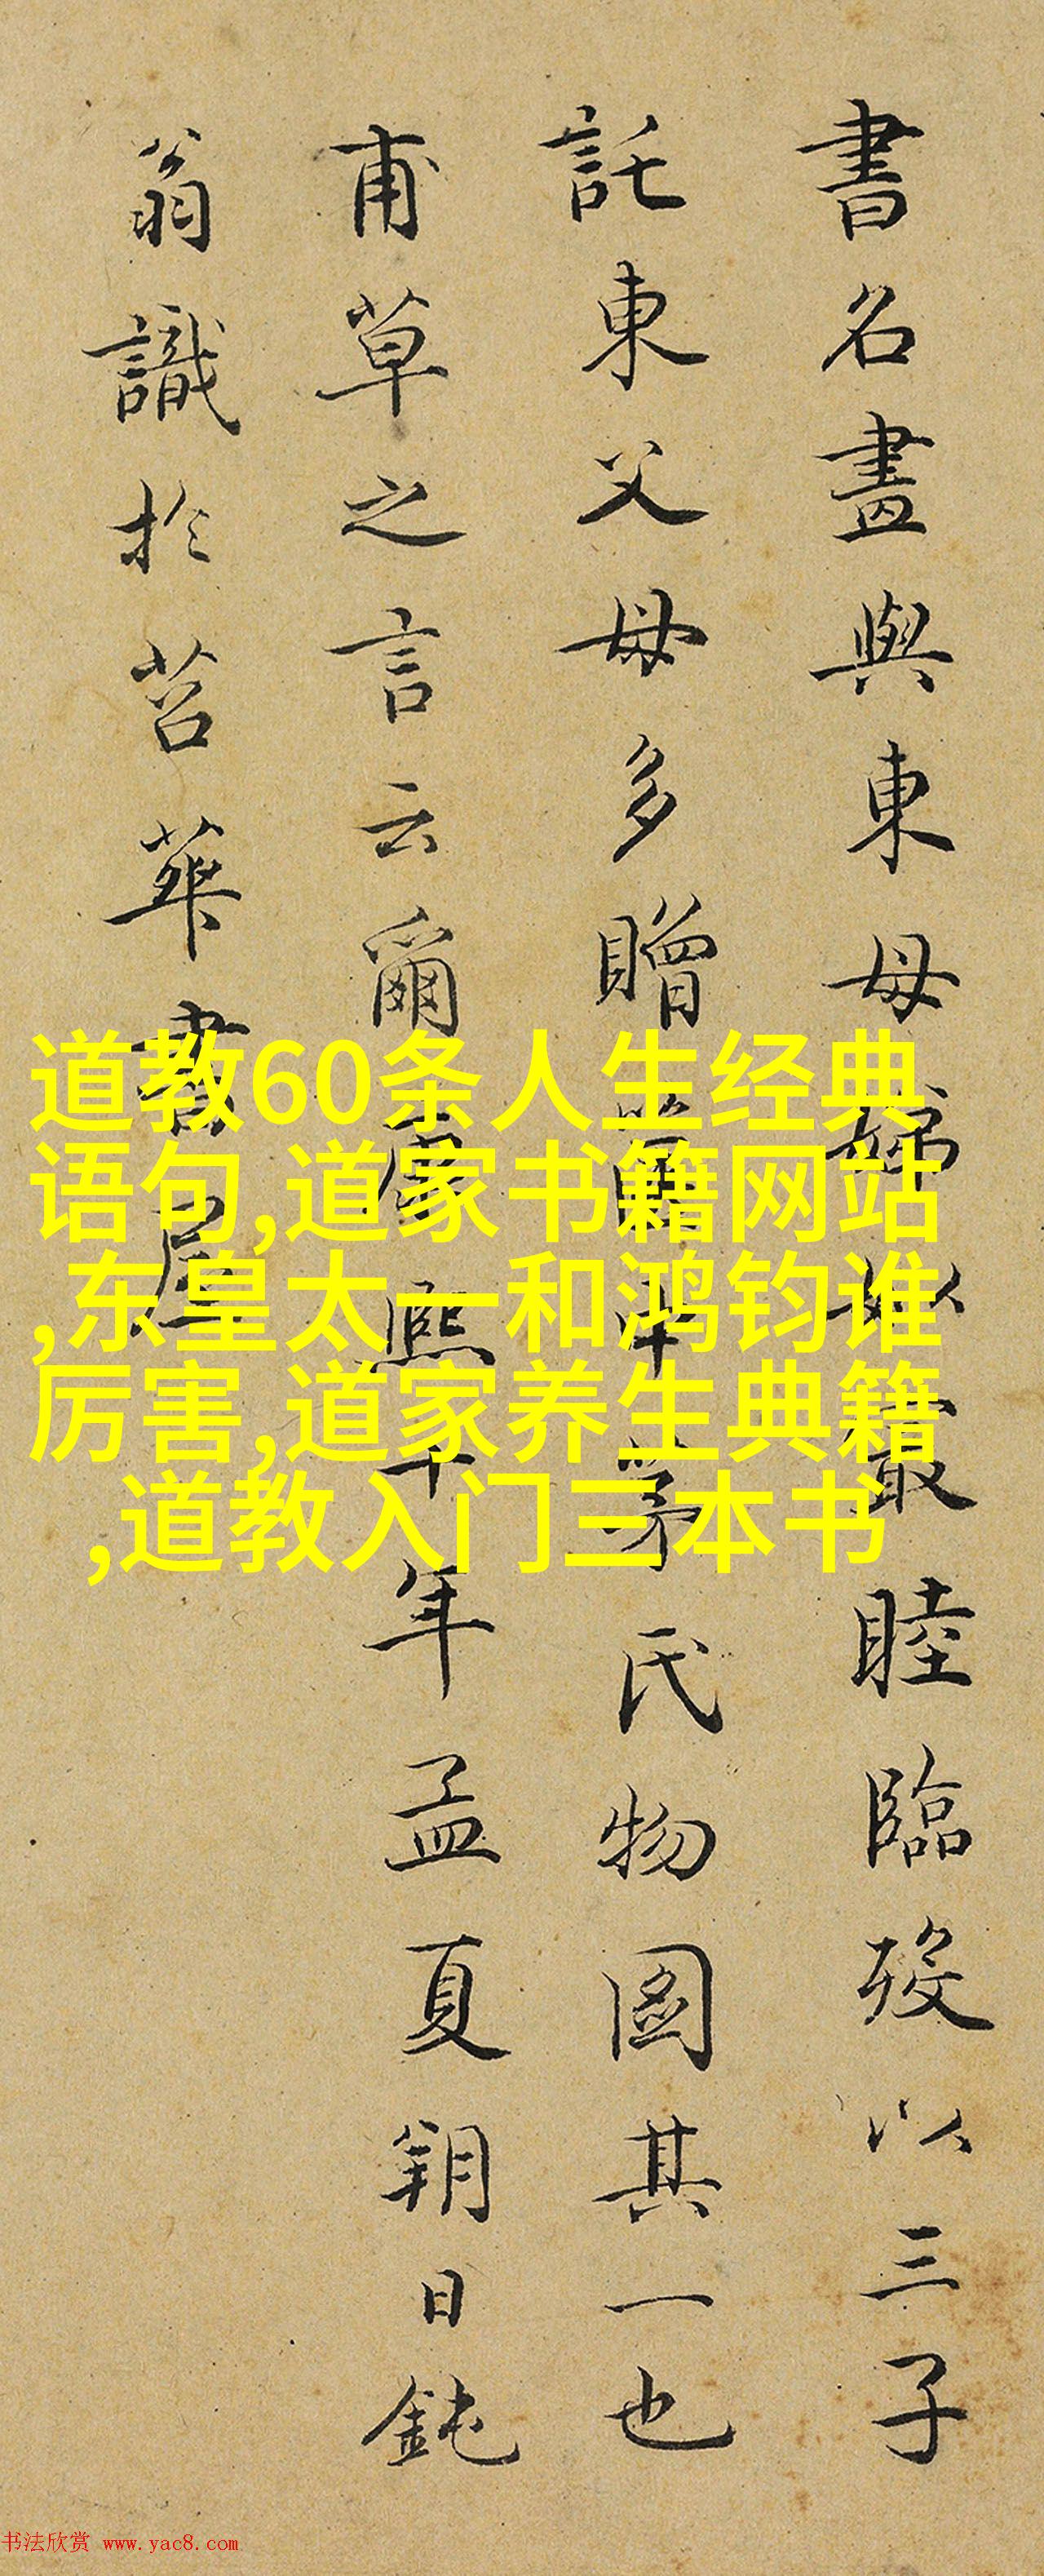 書名畫與東母娣姒最睦臨歿以三子
託東父母多贈舊中等氏物圖其一也
甫草之言云爾康熙十年孟夏朔日鈍
翁識於苕華書屋
道教60条人生经典
语句,道家书籍网站
,东皇太一和鸿钧谁
厉害,道家养生典籍
,道教入门三本书
书法欣赏 www.yac8.com